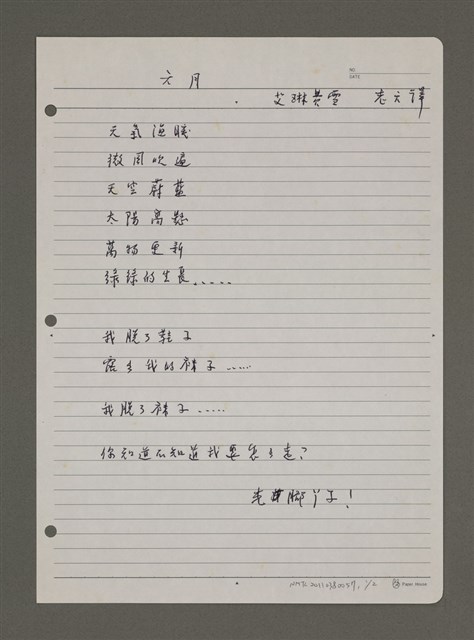 六月
NO.
DATE
艾琳費雪
天氣溫暖
微風吹過
天空蔚藍
太陽高懸
萬物更新
綠綠的生長.....
我脫了鞋子
露出我的襪子.....
我脫了襪子.....
你知道不知道我要怎么走?
光着脚丫子!
NMTL20110380057, 1/2
Paper House